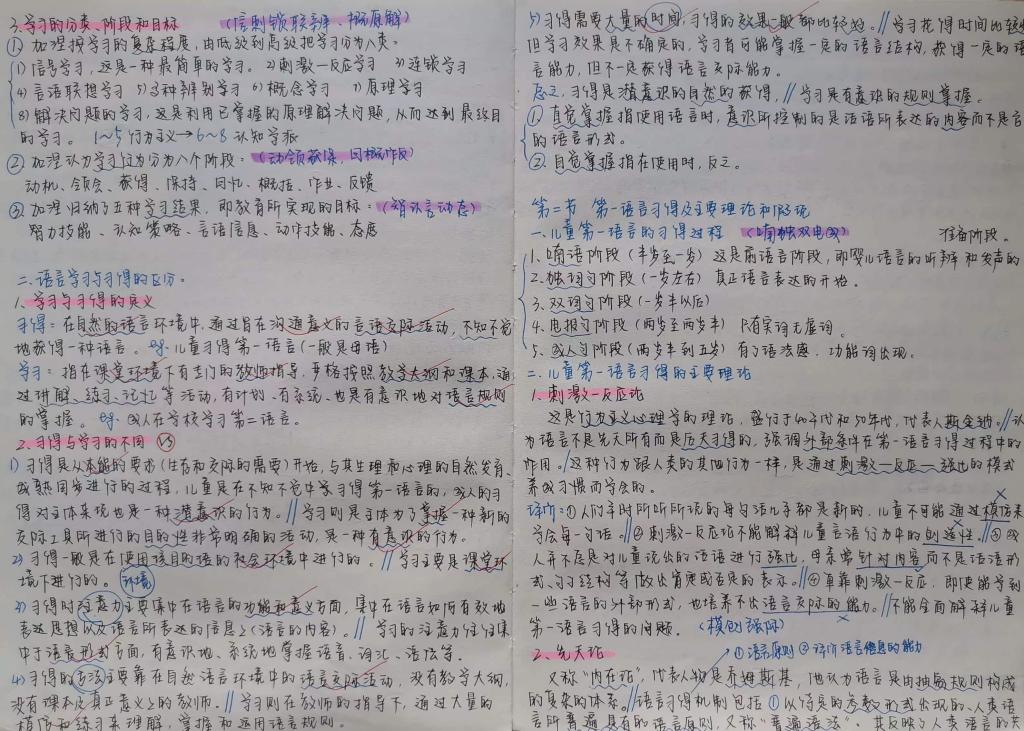 3. 学习的分类、阶段和目标 (信刺锁联辨、概原解)
① 加涅按学习的复杂程度,由低级到高级把学习分为八类。
(1) 信号学习,这是一种最简单的学习。 2) 刺激—反应学习 3) 连锁学习
4) 言语联想学习 5) 多种辨别学习 6) 概念学习 7) 原理学习
8) 解决问题的学习,这是利用已掌握的原理解决问题,从而达到最终目
的学习。 1~5 行为主义→6~8 认知学派
② 加涅认为学习行为分为八个阶段: (动领获保,回概作反)
动机、领会、获得、保持、回忆、概括、作业、反馈
③ 加涅归纳了五种学习结果,即教育所实现的目标: (智认言动态)
智力技能、认知策略、言语信息、动作技能、态度
二. 语言学习与习得的区分。
1. 学习与习得的定义
习得: 在自然的语言环境中,通过旨在沟通意义的言语交际活动,不知不觉
地获得一种语言。 eg. 儿童习得第一语言(一般是母语)
学习: 指在课堂环境下有专门的教师指导,严格按照教学大纲和课本,通
过讲解、练习、记忆等活动,有计划、有系统、也是有意识地对语言规则
的掌握。 eg. 成人在学校学习第二语言。
2. 习得与学习的不同 VS
1) 习得是从本能的要求(生存和交际的需要)开始,与其生理和心理的自然发育、
成熟同步进行的过程,儿童是在不知不觉中学习得第一语言的,成人的习
得对主体来说也是一种潜意识的行为。// 学习则是主体为了掌握一种新的
交际工具所进行的目的性非常明确的活动,是一种有意识的行为。
2) 习得一般是在使用该目的语的社会环境中进行的。// 学习主要是课堂环
境下进行的。 环境
3) 习得时注意力主要集中在语言的功能和意义方面,集中在语言如何有效地
表达思想以及语言所表达的信息上(语言的内容)。// 学习的注意力往往集
中于语言形式方面,有意识地、系统地掌握语音、词汇、语法等。
4) 习得的方法主要靠在自然语言环境中的语言交际活动,没有教学大纲,
没有课本及真正意义上的教师。// 学习则在教师的指导下,通过大量的
模仿和练习来理解、掌握和运用语言规则。
5) 习得需要大量的时间,习得的效果一般都比较好。// 学习花得时间比较
但学习效果是不确定的,学习者可能掌握一定的语言结构,获得一定的语
言能力,但不一定获得语言交际能力。
总之,习得是潜意识的自然的获得,// 学习是有意识的规则掌握。
① 直觉掌握指使用语言时,意识所控制的是话语所表达的内容而不是言
的语言形式。
② 自觉掌握指在使用时,反之。
第二节 第一语言习得及主要理论和假说
一、儿童第一语言的习得过程 (喃独双电成) 准备阶段。
1. 喃语阶段(半岁至一岁) 这是前语言阶段,即婴儿语言的听辨和发声的
2. 独词句阶段(一岁左右) 真正语言表达的开始。
3. 双词句阶段(一岁半以后)
4. 电报句阶段(两岁至两岁半) 只有实词无虚词。
5. 成人句阶段(两岁半到五岁) 有了语法感,功能词出现。
二. 儿童第一语言习得的主要理论
1. 刺激—反应论
这是行为主义心理学的理论,盛行于40年代和50年代,代表人斯金纳。// 认
为语言不是先天所有而是后天习得的,强调外部条件在第一语言习得过程中的
作用。// 这种行为跟人类的其他行为一样,是通过刺激—反应—强化的模式
养成习惯而学会的。
评价: ① 人们平时所听所说的每句话几乎都是新的,儿童不可能通过模仿来
学会每一句话。// ② 刺激—反应论不能解释儿童言语行为中的创造性。③ 成
人并不总是对儿童说出的话语进行强化,母亲常针对内容而不是话语形
式、句子结构等做出肯定或否定的表示。// ④ 单靠刺激—反应,即使能学到
一些语言的外部形式,也培养不出语言交际的能力。// 不能全面解释儿童
第一语言习得的问题。 (模创强际)
2. 先天论 ① 语言原则 ② 评价语言信息的能力
又称“内在论”,代表人物是乔姆斯基,他认为语言是由抽象规则构成
的复杂的体系。// 语言习得机制包括 ① 以待定的参数形式出现的、人类语
言所普遍具有的语言原则,又称“普遍语法”。其反映了人类语言的共